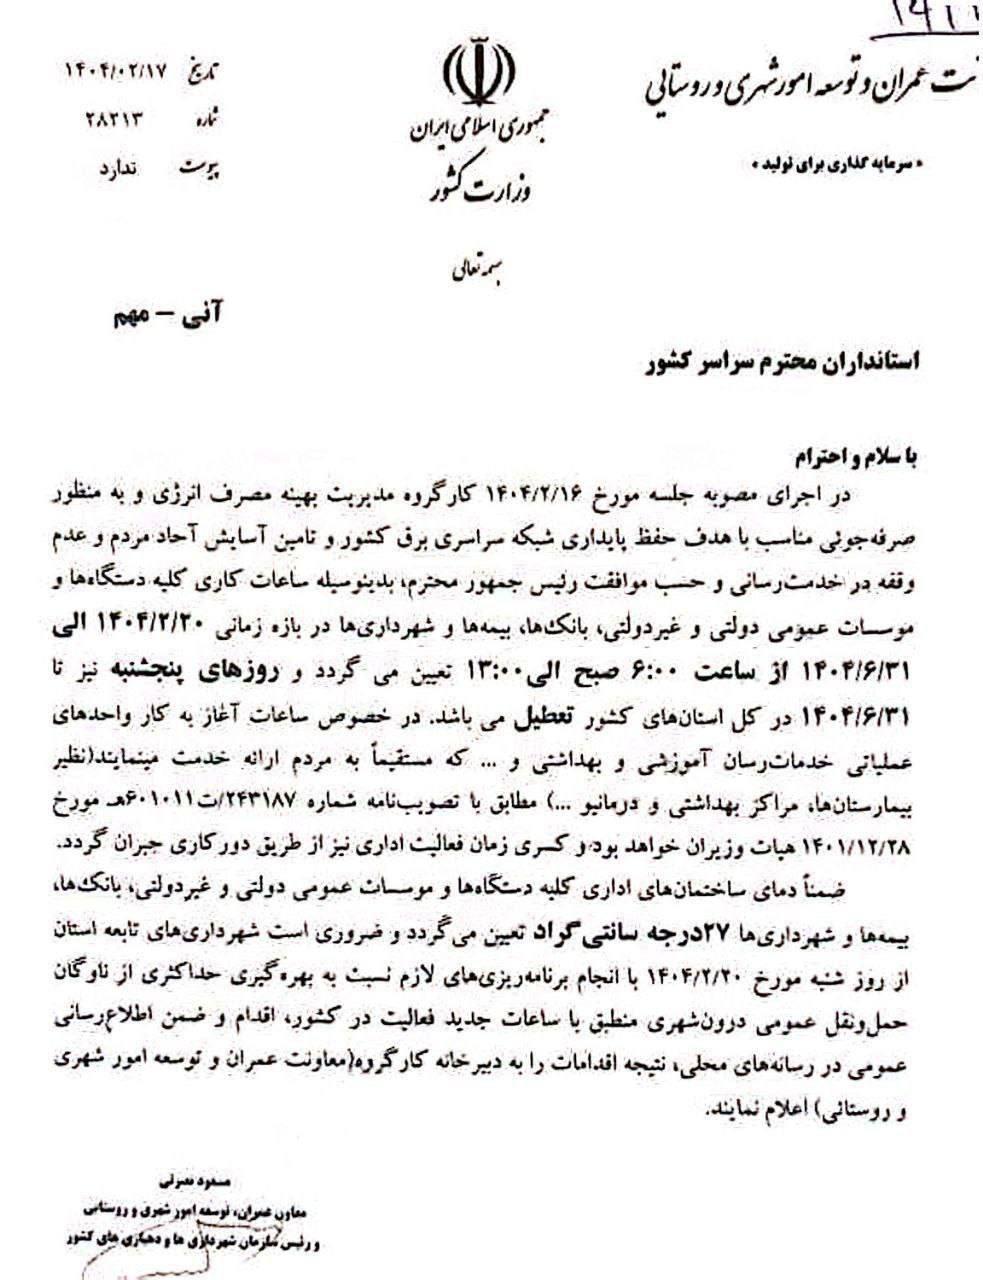 عمران و توسعه امور شهری و روستایی
« سرمایه گذاری برای تولید »
جمهوری اسلامی ایران
وزارت کشور
تاریخ ۱۴۰۴/۰۲/۱۷
شماره ۲۸۲۱۳
پیوست ندارد
بسمه تعالی
آنی – مهم
استانداران محترم سراسر کشور
با سلام و احترام
در اجرای مصوبه جلسه مورخ ۱۴۰۴/۲/۱۶ کارگروه مدیریت بهینه مصرف انرژی و به منظور
صرفه‌جوئی مناسب با هدف حفظ پایداری شبکه سراسری برق کشور و تامین آسایش آحاد مردم و عدم
وقفه در خدمت‌رسانی و حسب موافقت رئیس جمهور محترم، بدینوسیله ساعات کاری کلیه دستگاه‌ها و
موسسات عمومی دولتی و غیردولتی، بانک‌ها، بیمه‌ها و شهرداری‌ها در بازه زمانی ۱۴۰۴/۲/۲۰ الی
۱۴۰۴/۶/۳۱ از ساعت ۶:۰۰ صبح الی ۱۳:۰۰ تعیین می گردد و روزهای پنجشنبه نیز تا
۱۴۰۴/۶/۳۱ در کل استان‌های کشور تعطیل می باشد. در خصوص ساعات آغاز به کار واحدهای
عملیاتی خدمات‌رسان آموزشی و بهداشتی و ... که مستقیماً به مردم ارائه خدمت مینمایند(نظیر
بیمارستان‌ها، مراکز بهداشتی و درمانیو ...) مطابق با تصویب‌نامه شماره ۲۴۳۱۸۷/ت۶۰۱۰۱۱هـ مورخ
۱۴۰۱/۱۲/۲۸ هیات وزیران خواهد بود و کسری زمان فعالیت اداری نیز از طریق دورکاری جبران گردد.
ضمناً دمای ساختمان‌های اداری کلیه دستگاه‌ها و موسسات عمومی دولتی و غیردولتی، بانک‌ها،
بیمه‌ها و شهرداری‌ها ۲۷درجه سانتی‌گراد تعیین می‌گردد و ضروری است شهرداری‌های تابعه استان
از روز شنبه مورخ ۱۴۰۴/۲/۲۰ با انجام برنامه‌ریزی‌های لازم نسبت به بهره‌گیری حداکثری از ناوگان
حمل‌ونقل عمومی درون‌شهری منطبق با ساعات جدید فعالیت در کشور، اقدام و ضمن اطلاع‌رسانی
عمومی در رسانه‌های محلی، نتیجه اقدامات را به دبیرخانه کارگروه(معاونت عمران و توسعه امور شهری
و روستائی) اعلام نمایند.
مسعود نصرتی
معاون عمران، توسعه امور شهری و روستایی
و رئیس سازمان شهرداری ها و دهیاری های کشور